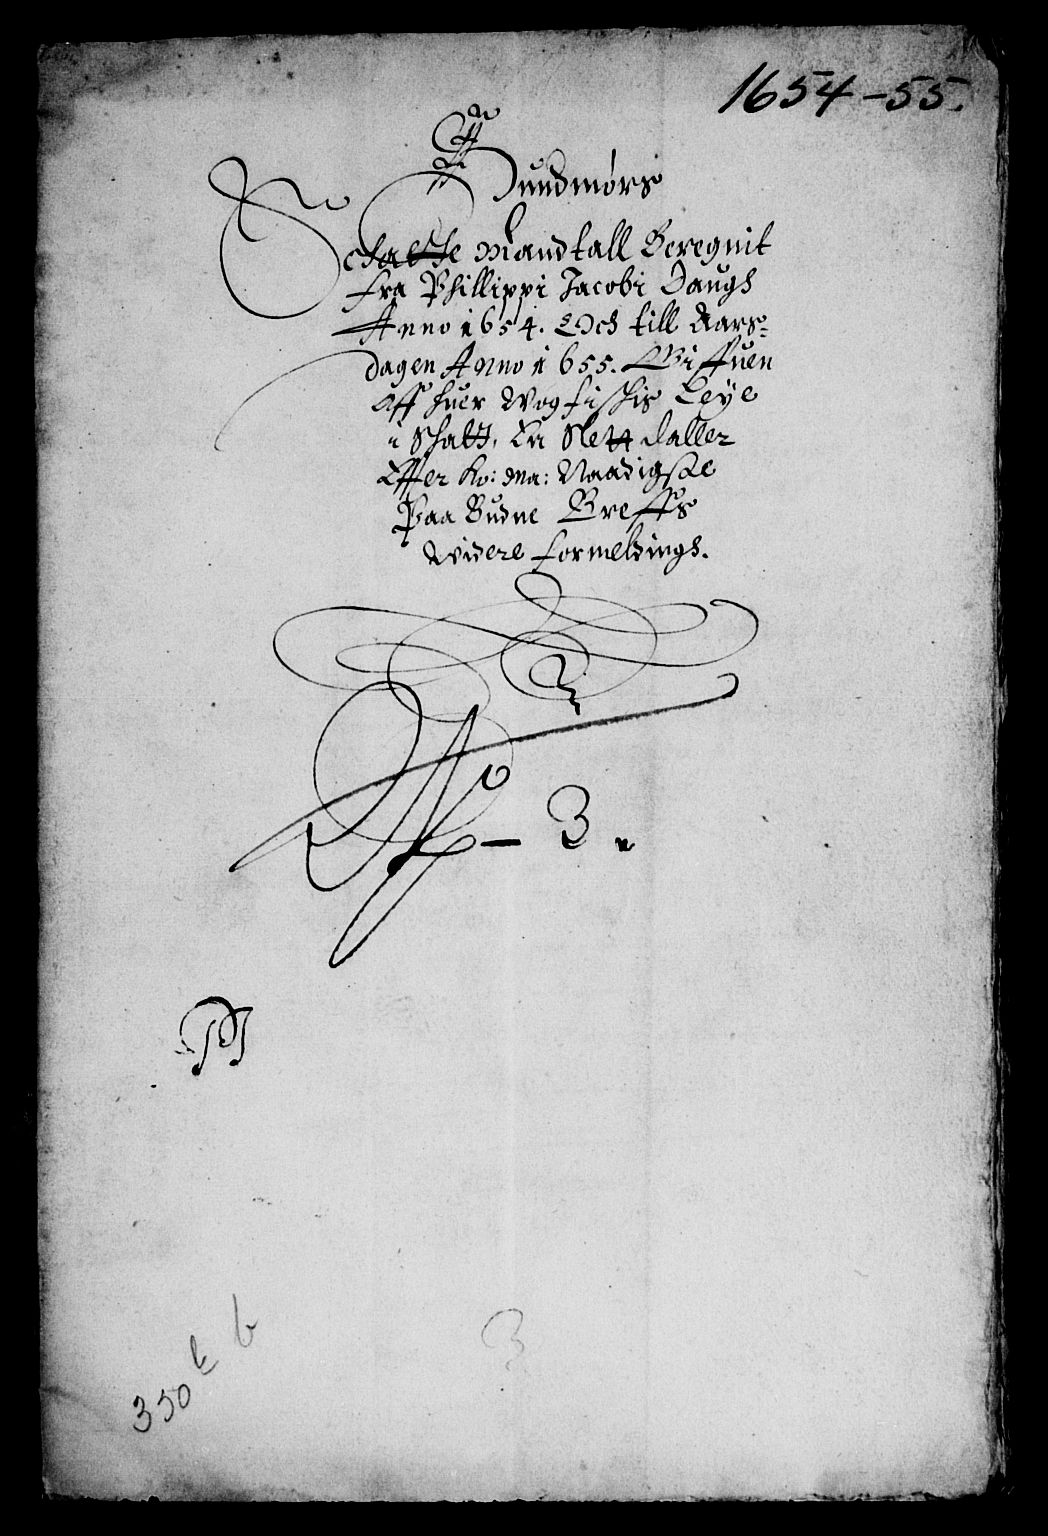 1654-55.
Sundmørs
Schatte Mandtall Beregnit
fra Phillippi Jacobi Daugh
Anno 1654. Och till Aars-
dagen Anno 1655. Giffuen
Aff huer Wogfischis Leye
i Schatt, En Slett daller
Effter Ko: Ma: Naadigste
Paa Budne Breffs
Widere formeldingh.
N - 3.
3
350 b